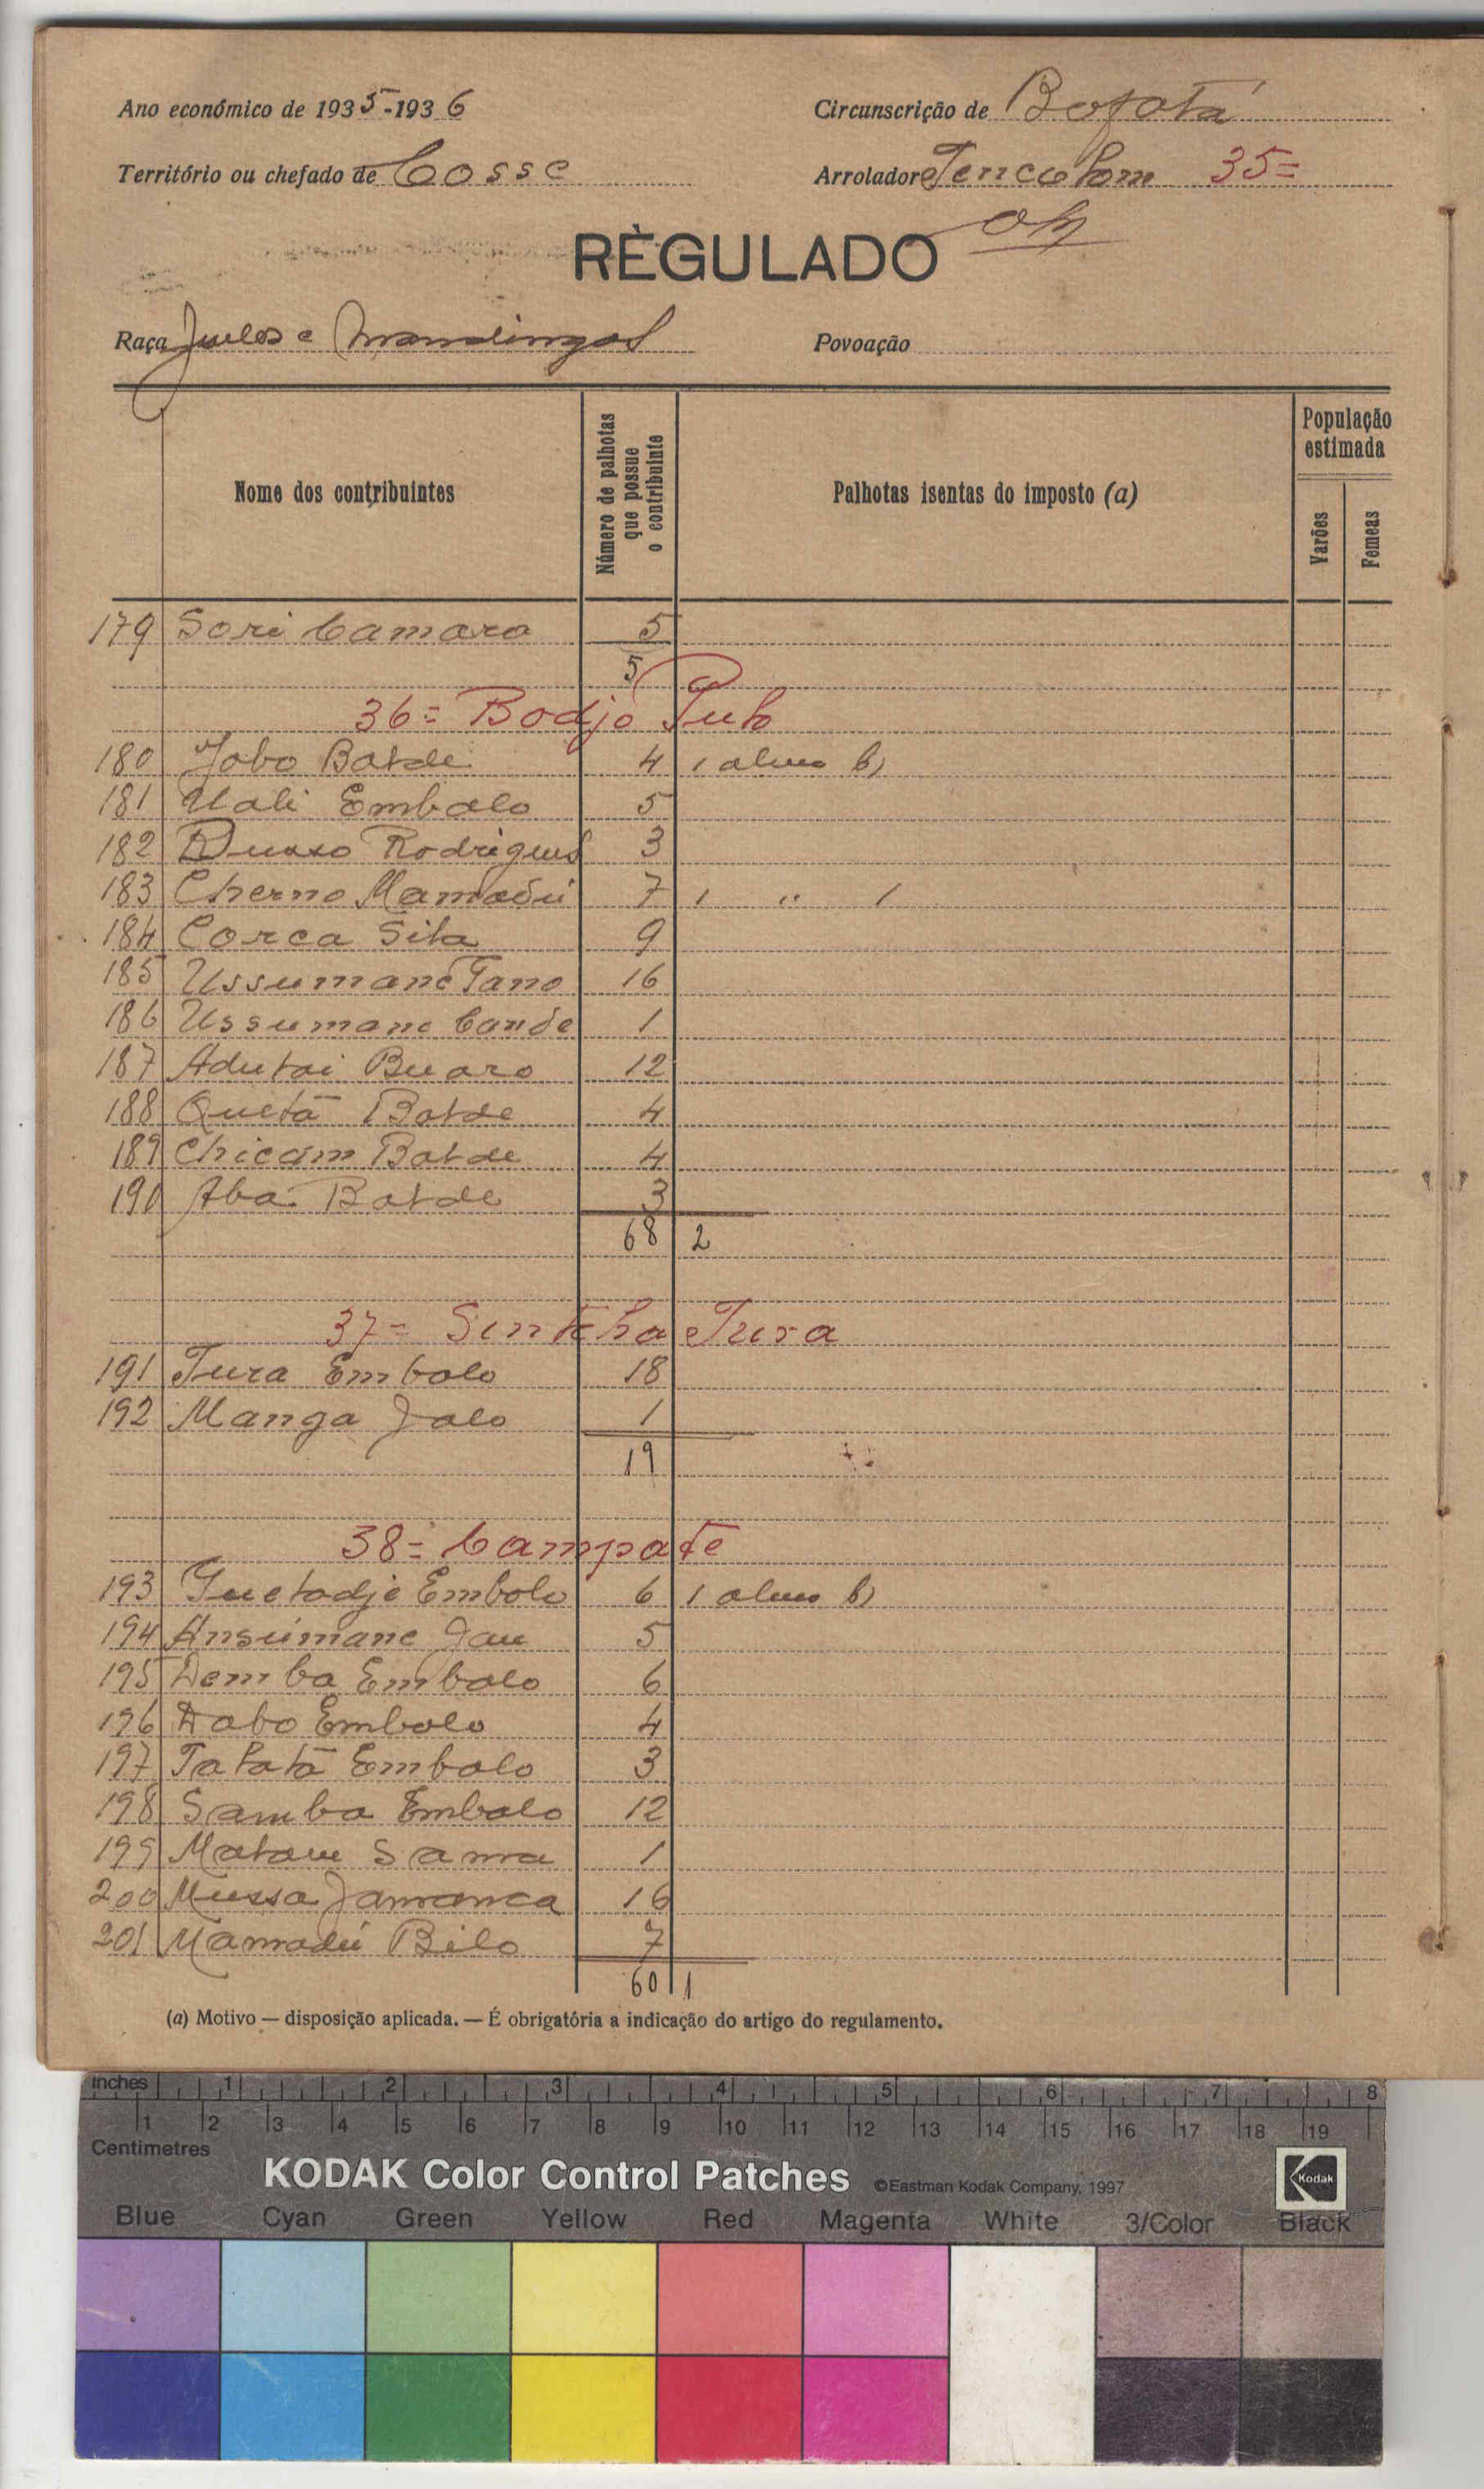 Ano económico de 1935-1936
Circunscrição de Bofatá
Território ou chefado de Cosse
Arrolador Tencolom 35=
RÈGULADO
Raça Fuulos e Mandingas
Povoação
Nome dos contribuintes
Número de palhotas que possue o contribuinte
Palhotas isentas do imposto (a)
População estimada
Varões
Femeas
179 Sori Camara 5
5
36= Bodjo Pulo
180 Jobo Balde 4 1 aluno b)
181 Uali Embalo 5
182 Rodrigues 3
183 Cherno Mamadú 7 1 " 1
184 Corca Sila 9
185 Ussumane Jano 16
186 Ussumane Cande 1
187 Adulai Buaro 12
188 Quetá Balde 4
189 Chicám Balde 4
190 Aba Balde 3
68 2
37= Tura
191 Tura Embalo 18
192 Manga Jalo 1
19
38= Campate
193 Embalo 6 1 aluno b)
194 Ansumane Jau 5
195 Demba Embalo 6
196 Dabo Embalo 4
197 Embalo 3
198 Samba Embalo 12
199 1
200 Mussa Jamanca 16
201 Mamadú Bilo 7
60 1
(a) Motivo — disposição aplicada. — É obrigatória a indicação do artigo do regulamento.
inches 1 2 3 4 5 6 7 8
1 2 3 4 5 6 7 8 9 10 11 12 13 14 15 16 17 18 19
Centimetres
KODAK Color Control Patches ©Eastman Kodak Company, 1997 Kodak
Blue Cyan Green Yellow Red Magenta White 3/Color Black